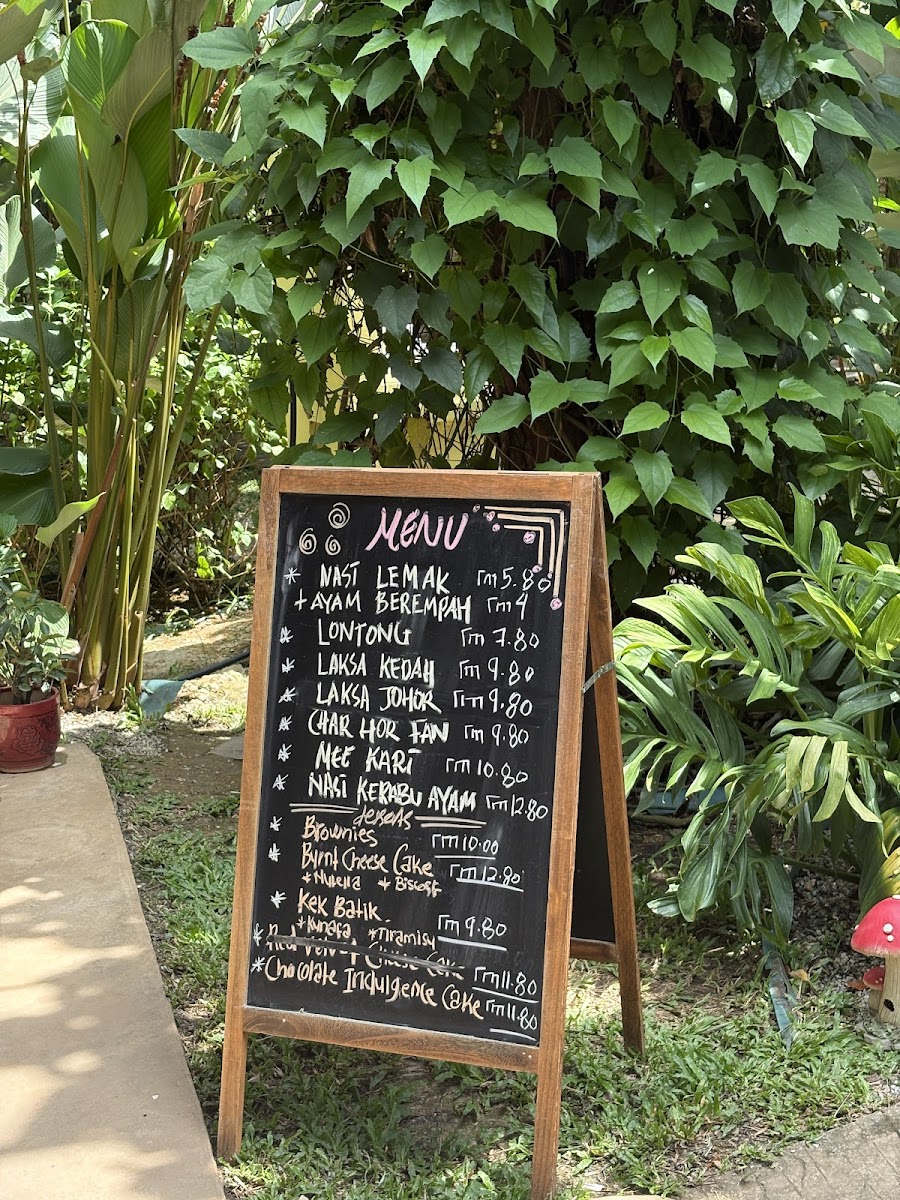 MENU
* NASI LEMAK rm 5.80
+ AYAM BEREMPAH rm 4
* LONTONG rm 7.80
* LAKSA KEDAH rm 9.80
* LAKSA JOHOR rm 9.80
* CHAR HOR FAN rm 9.80
* MEE KARI rm 10.80
* NASI KERABU AYAM rm 12.80
deserts
* Brownies rm 10.00
* Burnt Cheese Cake rm 12.80
* Nutella * Biscoff
* Kek Batik rm 9.80
* Kunafa * Tiramisu
* Red Velvet Cheese Cake rm 11.80
* Chocolate Indulgence Cake rm 11.80